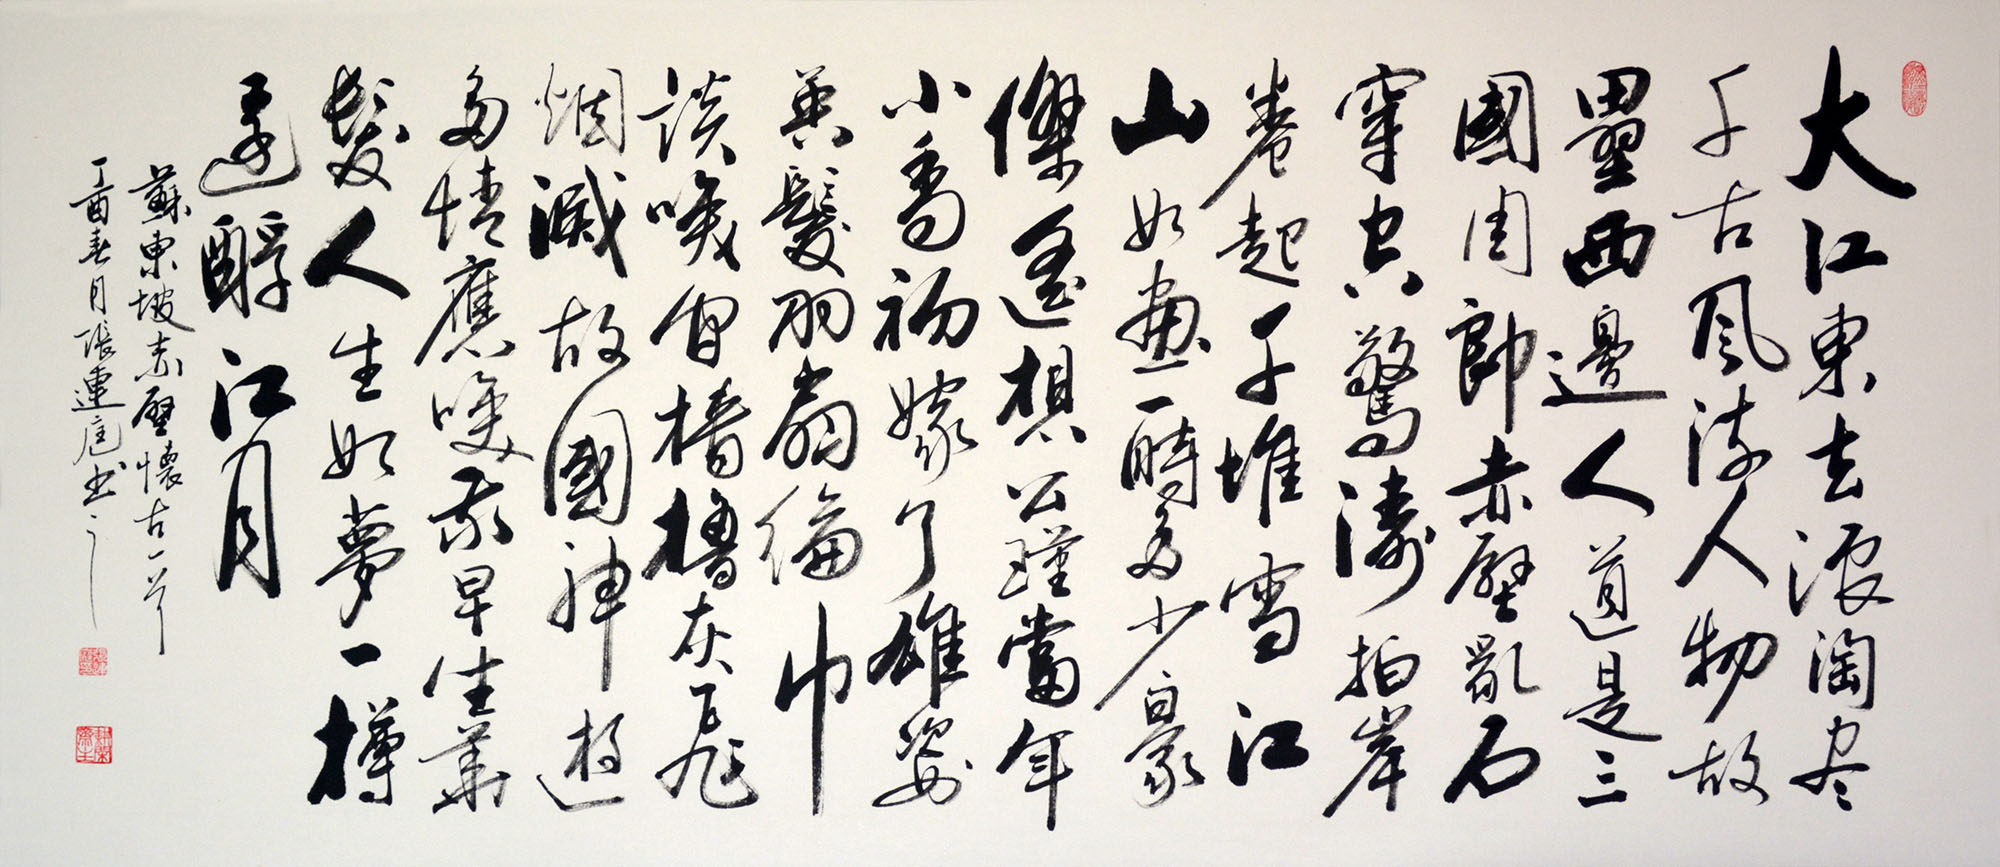 大江東去浪淘尽
千古風流人物故
壘西邊人道是三
國周郎赤壁亂石
穿空驚濤拍岸
卷起千堆雪江
山如畫一時多少豪
傑遙想公瑾當年
小喬初嫁了雄姿
英髮羽扇綸巾
談咲间檣櫓灰飛
烟滅故國神遊
多情應咲我早生華
髮人生如夢一樽
還酹江月
蘇東坡赤壁懷古一首
丁酉春月張連庭书之